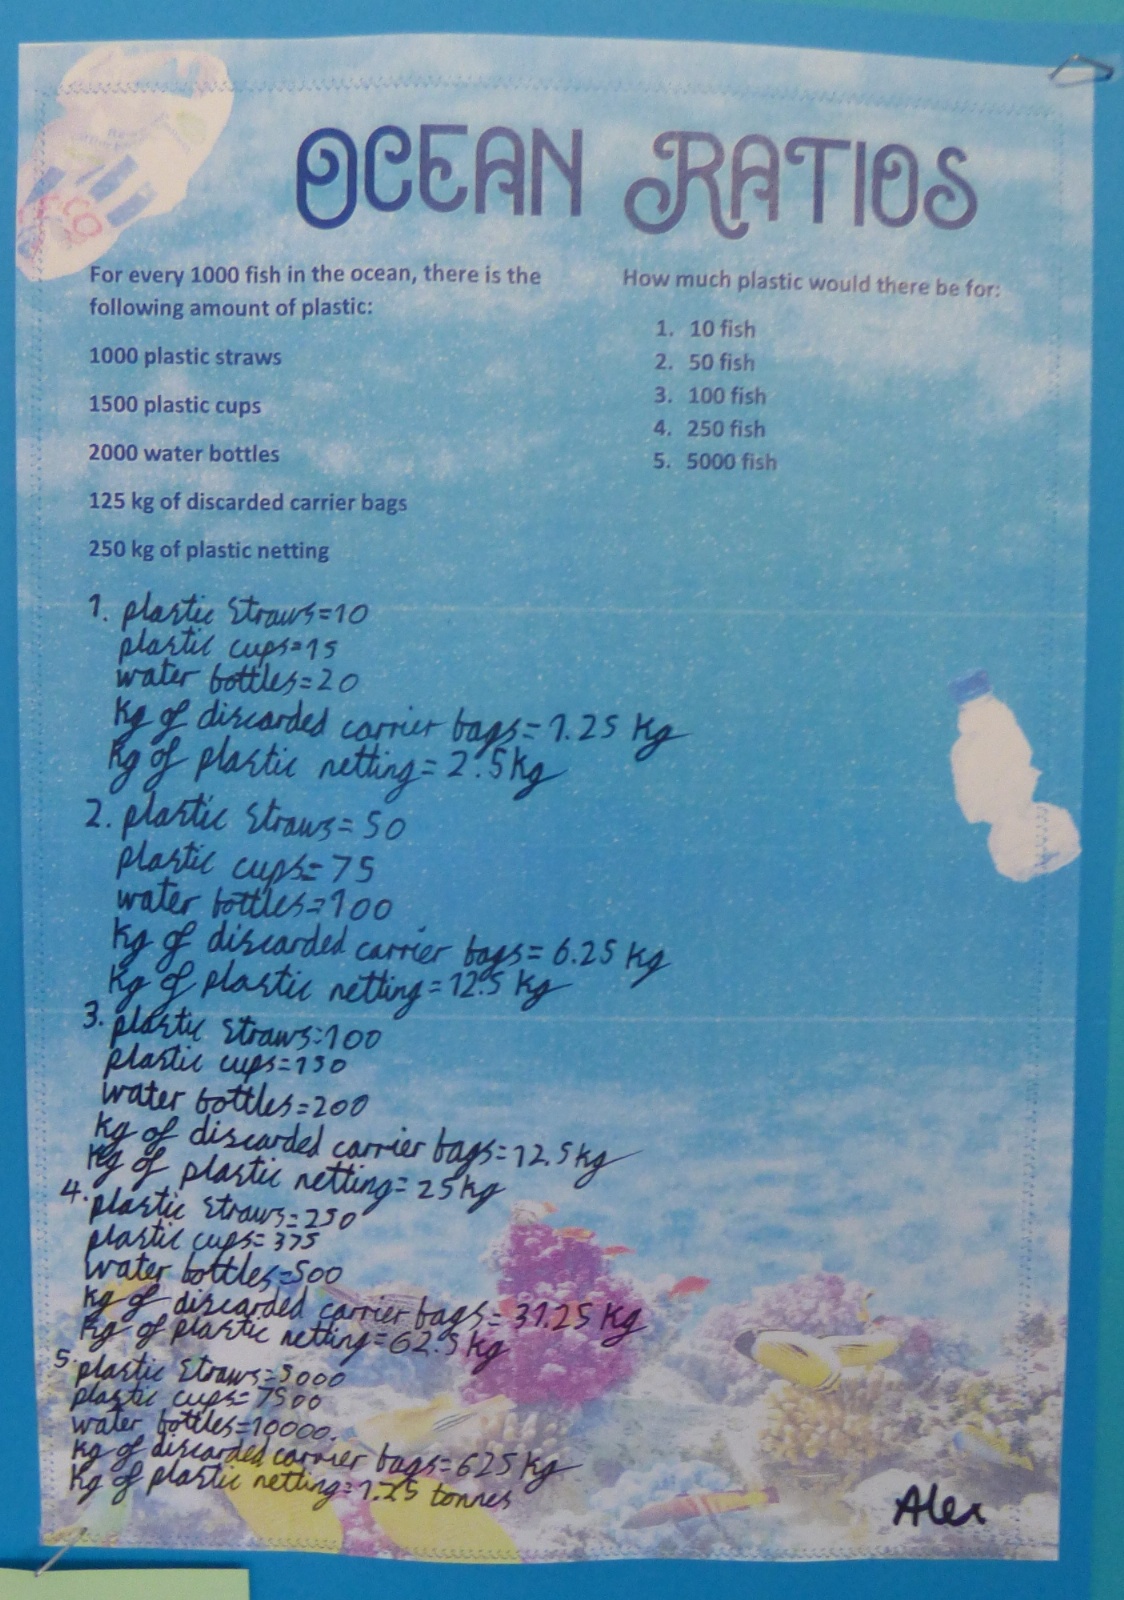 OCEAN RATIOS
For every 1000 fish in the ocean, there is the
following amount of plastic:
1000 plastic straws
1500 plastic cups
2000 water bottles
125 kg of discarded carrier bags
250 kg of plastic netting
How much plastic would there be for:
1. 10 fish
2. 50 fish
3. 100 fish
4. 250 fish
5. 5000 fish
1. plastic straws=10
plastic cups=15
water bottles=20
Kg of discarded carrier bags=1.25 Kg
Kg of plastic netting=2.5kg
2. plastic straws=50
plastic cups=75
water bottles=100
Kg of discarded carrier bags=6.25 Kg
Kg of plastic netting=12.5 Kg
3. plastic straws=100
plastic cups=150
water bottles=200
Kg of discarded carrier bags=12.5kg
Kg of plastic netting=25kg
4. plastic straws=250
plastic cups=375
water bottles=500
Kg of discarded carrier bags=31.25 Kg
Kg of plastic netting=62.5kg
5. plastic straws=5000
plastic cups=7500
water bottles=10000.
Kg of discarded carrier bags=625 Kg
Kg of plastic netting=1.25 tonnes
Alex